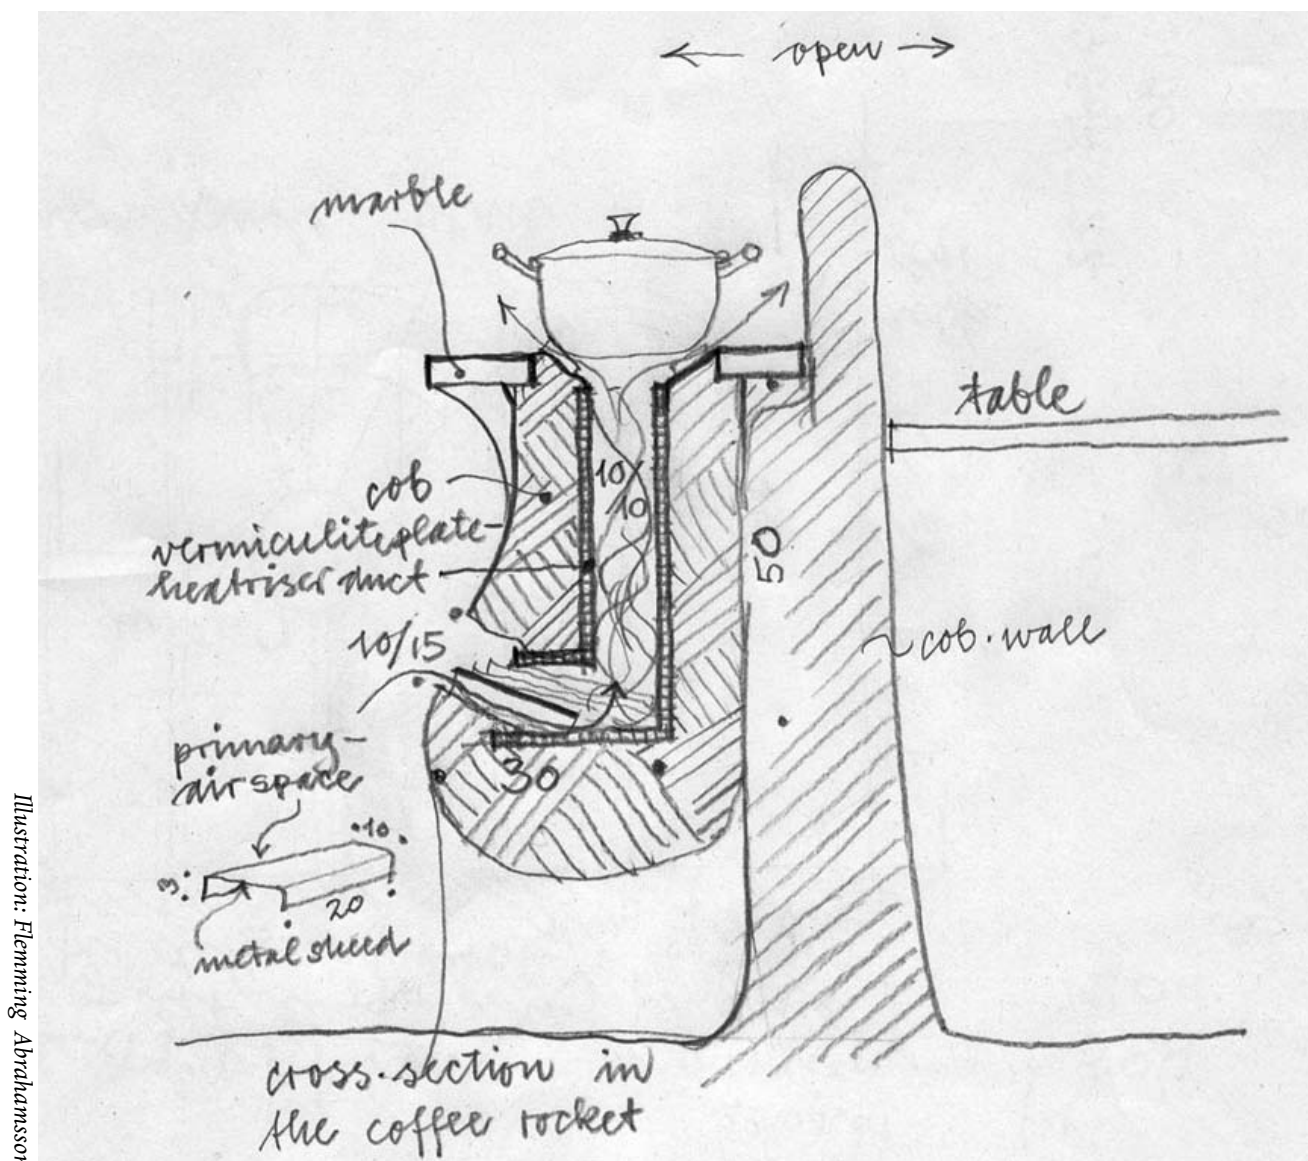 ← open →
marble
table
cob
vermiculiteplate-
heatriser duct
10/
10
50
10/15
cob.wall
primary-
air space
30
10
3
20
metal sheed
cross.section in
the coffee rocket
Illustration: Flemming Abrahamsson